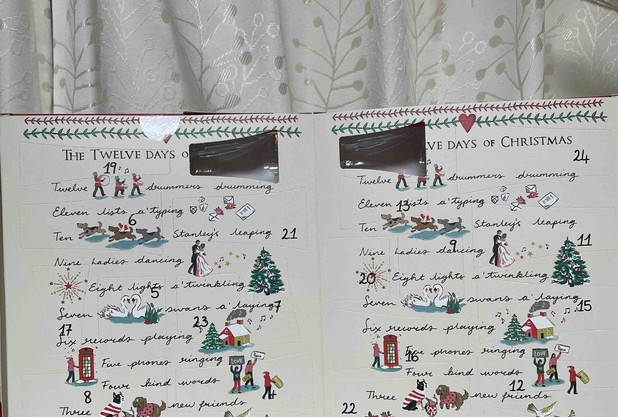 THE TWELVE DAYS O
19
Twelve drummers drumming
Eleven lists a'typing
6
Ten Stanley's leaping 21
Nine Ladies dancing
Eight lights a'twinkling
5
Seven swans a'laying 7
17 23
Six records playing
Five phones ringing
Four kind words
LOVE
8 4
Three new friends
VE DAYS OF CHRISTMAS
24
Twelve drummers drumming
13
Eleven lists a'typing
Ten Stanley's leaping
9 11
Nine Ladies dancing
20 Eight lights a'twinkling
Seven swans a'laying 15
Six records playing
16
Five phones ringing
Four kind words
LOVE
12
Three new friends
22